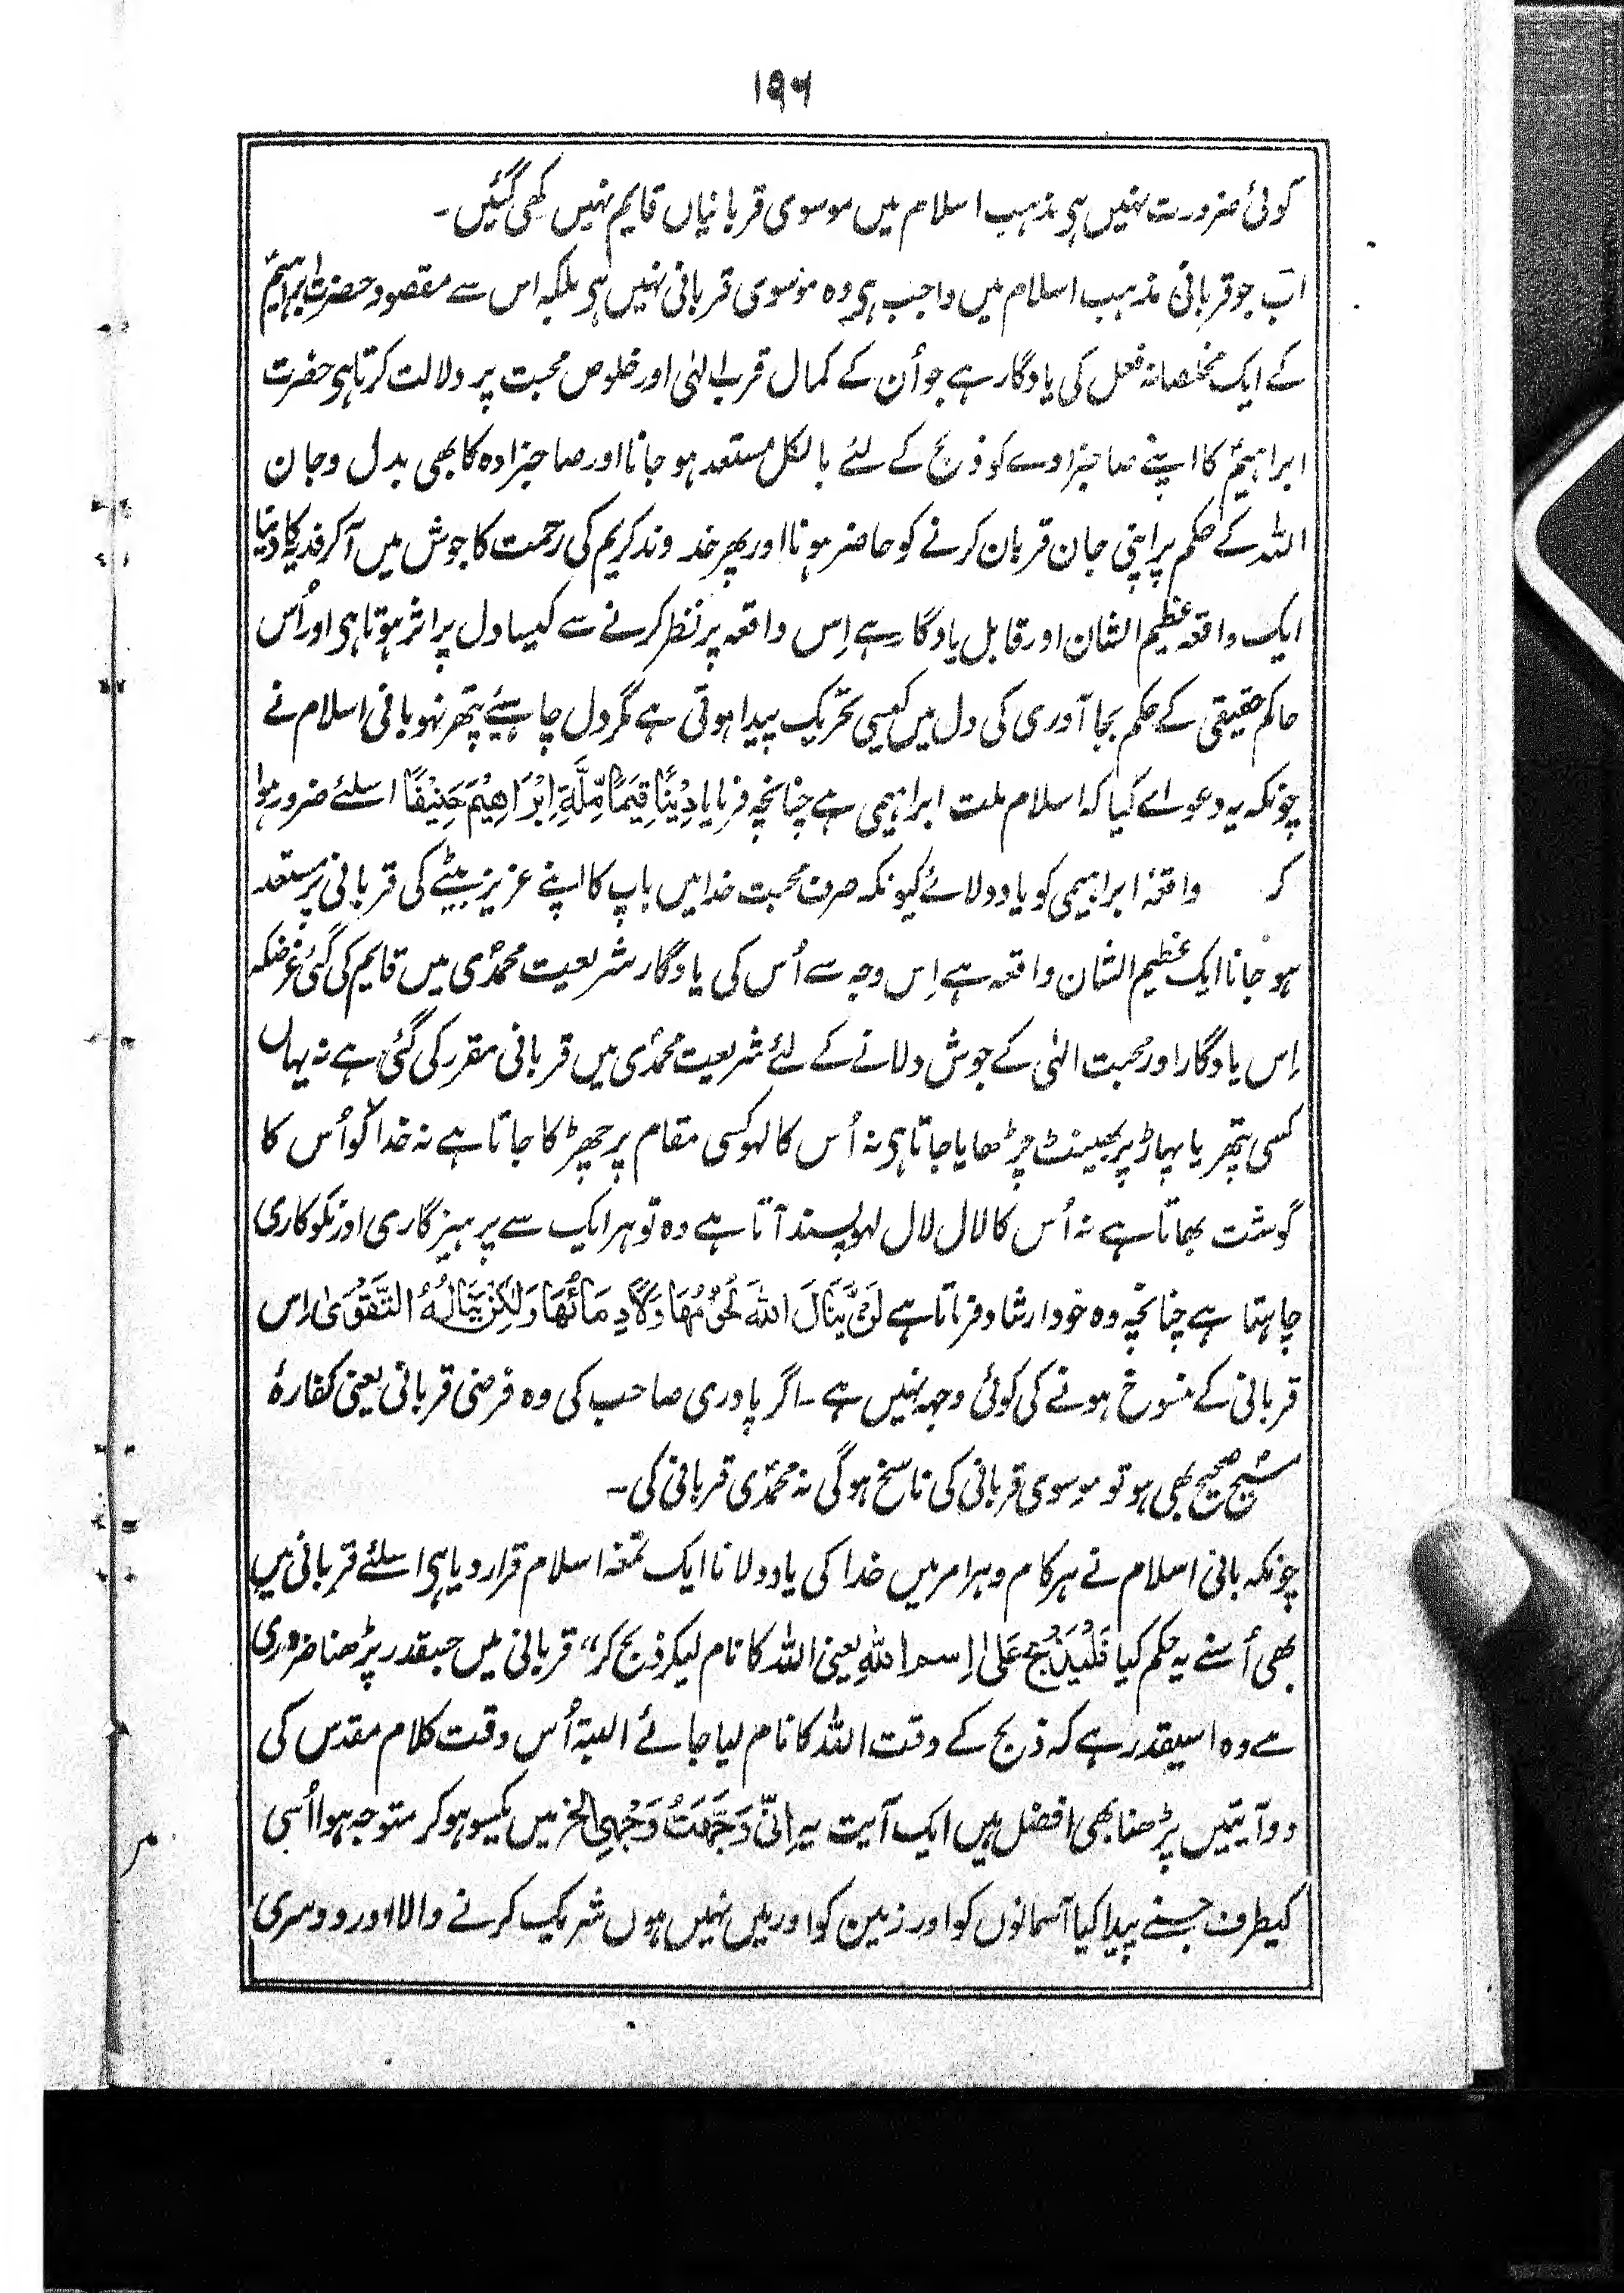 ۱۹۶
کوئی ضرورت نہیں ہی مذہب اسلام میں موسوی قربانیاں قایم نہیں رکھی گئیں۔
اب جو قربانی مذہب اسلام میں واجب ہی وہ موسوی قربانی نہیں ہی بلکہ اس سے مقصود حضرت ابراہیمؑ
کے ایک مخلصانہ فعل کی یادگار ہے جو اُن کے کمال قرب الٰہی اور خلوص محبت پر دلالت کرتا ہی حضرت
ابراہیمؑ کا اپنے صاحبزادے کو ذبح کے لئے بالکل مستعد ہو جانا اور صاحبزادہ کا بھی بدل و جان
اللہ کے حکم پر اپنی جان قربان کرنے کو حاضر ہونا اور پھر خداوند کریم کی رحمت کا جوش میں آکر فدیہ کا دینا
ایک واقعہ عظیم الشان اور قابل یادگار ہے اِس واقعہ پر نظر کرنے سے کیسا دل پر اثر ہوتا ہی اور اُس
حاکم حقیقی کے حکم بجا آوری کی دل میں کیسی تحریک پیدا ہوتی ہے مگر دل چاہیئے پتھر نہو بانی اسلام نے
چونکہ یہ دعوے کیا کہ اسلام ملت ابراہیمی ہے چنانچہ فرمایا دِیْنًا قِیَمًا مِّلَّةَ اِبْرَاهِیْمَ حَنِیْفًا اسلئے ضرور ہوا
کہ واقعۂ ابراہیمی کو یاد دلائے کیونکہ صرف محبت خدا میں باپ کا اپنے عزیز بیٹے کی قربانی پر مستعد
ہو جانا ایک عظیم الشان واقعہ ہے اِس وجہ سے اُس کی یادگار شریعت محمدؐی میں قایم کی گئی غرضکہ
اِس یادگار اور محبت الٰہی کے جوش دلانے کے لئے شریعت محمدؐی میں قربانی مقرر کی گئی ہے نہ یہاں
کسی پتھر یا پہاڑ پر بھینٹ چڑھایا جاتا ہی نہ اُس کا لہو کسی مقام پر چھڑکا جاتا ہے نہ خدا کو اُس کا
گوشت بھاتا ہے نہ اُس کا لال لال لہو پسند آتا ہے وہ تو ہر ایک سے پرہیزگاری اور نکوکاری
چاہتا ہے چنانچہ وہ خود ارشاد فرماتا ہے لَنْ یَّنَالَ اللهَ لُحُوْمُهَا وَلَا دِمَائُهَا وَلٰکِنْ یَّنَالُهُ التَّقْوٰی اِس
قربانی کے منسوخ ہونے کی کوئی وجہہ نہیں ہے۔ اگر پادری صاحب کی وہ فرضی قربانی یعنی کفارۂ
مسیح صحیح بھی ہو تو موسوی قربانی کی ناسخ ہوگی نہ محمدؐی قربانی کی۔
چونکہ بانی اسلام نے ہر کام و ہر امر میں خدا کی یاد دلانا ایک تمغہ اسلام قرار دیا ہی اسلئے قربانی میں
بھی اُسنے یہ حکم کیا فَلْیَذْبَحْ عَلیٰ اِسم اللهِ یعنی اللہ کا نام لیکر ذبح کر“ قربانی میں جسقدر پڑھنا ضروری
ہے وہ اسیقدر ہے کہ ذبح کے وقت اللہ کا نام لیا جائے البتہ اُس وقت کلام مقدس کی
دو آیتیں پڑھنا بھی افضل ہیں ایک آیت یہ اِنِّیْ وَجَّهْتُ وَجْهِیَ الخ میں یکسو ہو کر متوجہ ہوا اُسی
کیطرف جسنے پیدا کیا آسمانوں کو اور زمین کو اور میں نہیں ہوں شریک کرنے والا اور دوسری